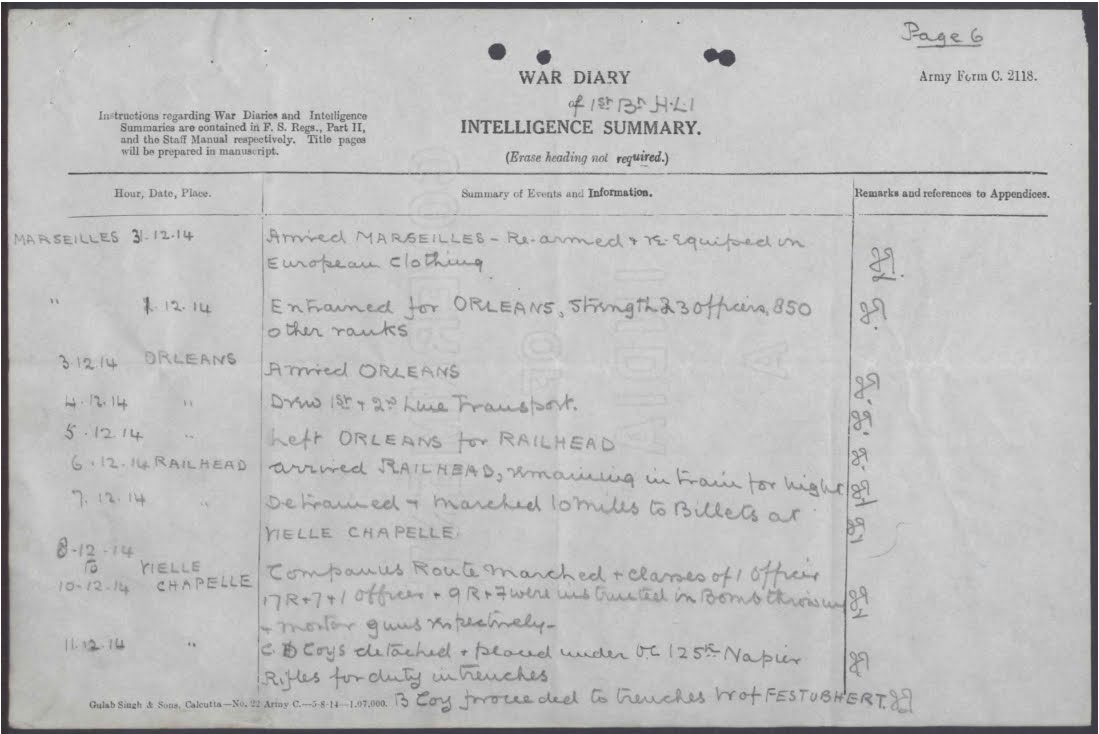 Page 6
WAR DIARY
Army Form C. 2118.
of 1st Bn H.L.I
INTELLIGENCE SUMMARY.
(Erase heading not required.)
Instructions regarding War Diaries and Intelligence
Summaries are contained in F. S. Regs., Part II,
and the Staff Manual respectively. Title pages
will be prepared in manuscript.
Hour, Date, Place.
Summary of Events and Information.
Remarks and references to Appendices.
MARSEILLES .12.14
Arrived MARSEILLES - Re-armed + re-equiped in
European Clothing
" 1.12.14
Entrained for ORLEANS, strength 23 officers, 850
other ranks
3.12.14 ORLEANS
Arrived ORLEANS
4.12.14 "
Drew 1st + 2nd Line Transport.
5.12.14 "
Left ORLEANS for RAILHEAD
6.12.14 RAILHEAD
arrived RAILHEAD, remaining in train for night
7.12.14 "
Detrained + marched 10 miles to Billets at
VIELLE CHAPELLE
8-12-14
to VIELLE
10-12-14 CHAPELLE
Companies Route marched + classes of 1 Officer
17 R+7 + 1 officer + 9 R+7 were instructed in Bomb throwing
+ mortar guns respectively -
11.12.14 "
C. D Coys detached + placed under O.C 125th Napier
Rifles for duty in trenches
B Coy proceeded to trenches W of FESTUBHERT.
Gulab Singh & Sons, Calcutta—No. 22 Army C.—5-8-14—1,07,000.